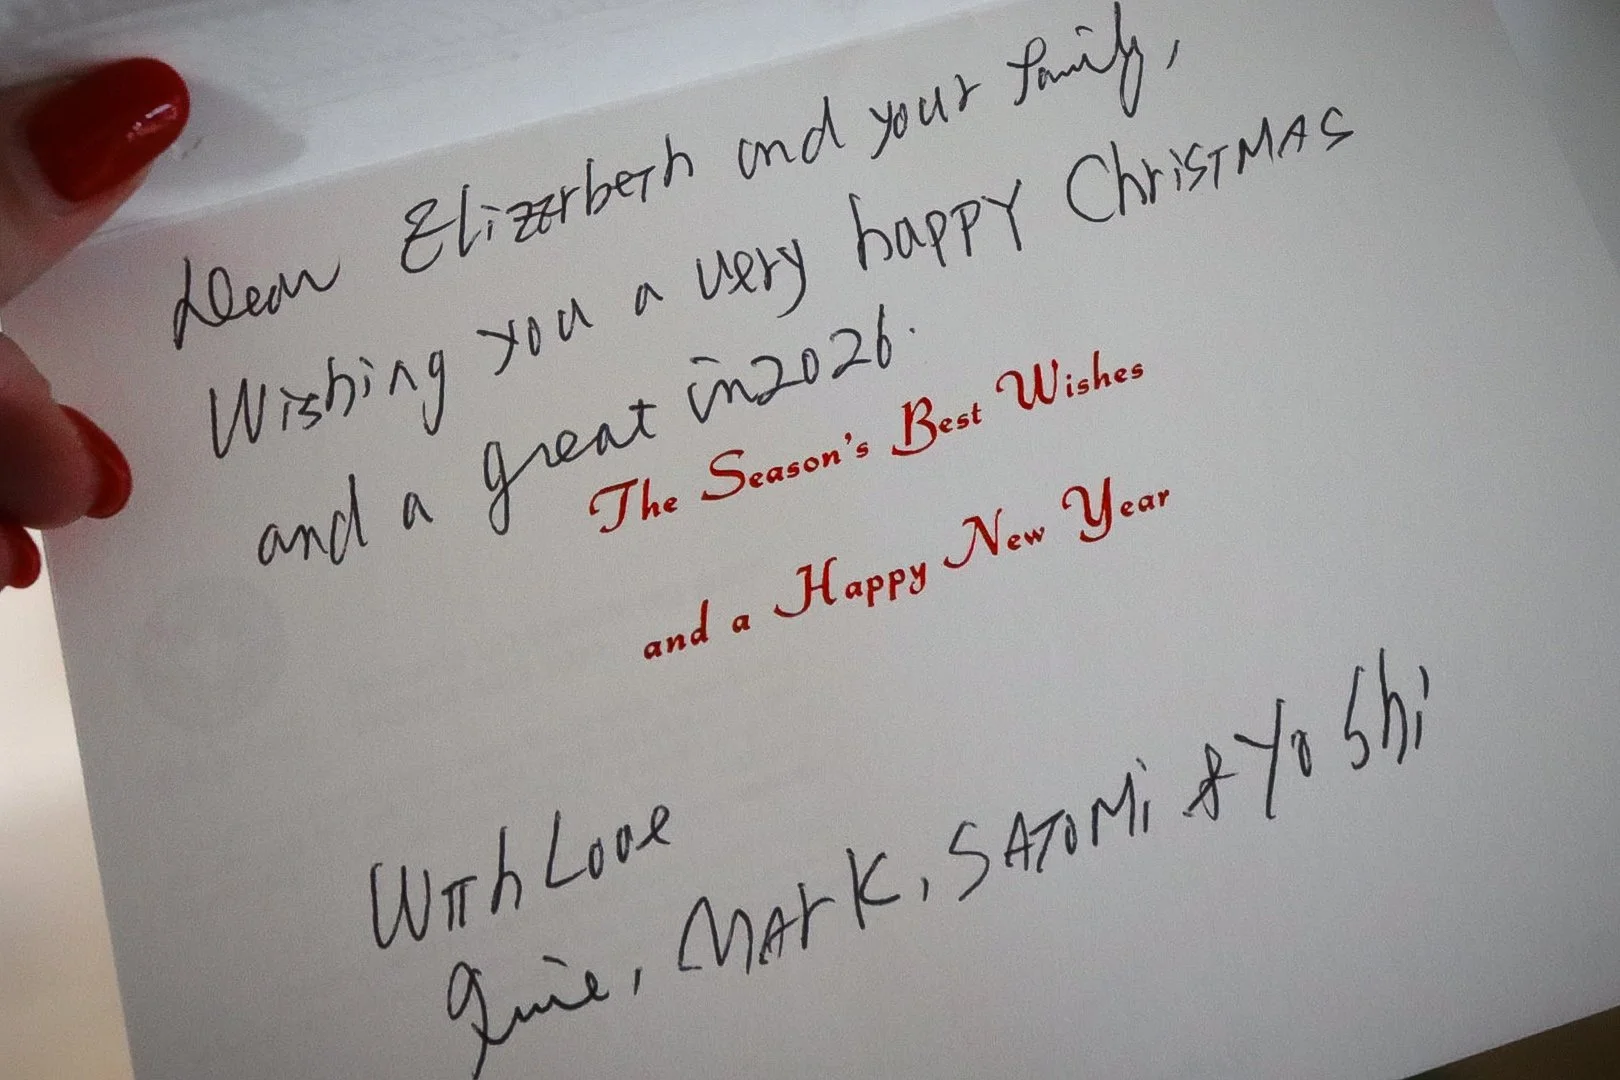 Dear Elizerbeth and your family,
Wishing you a very happy Christmas
and a great in 2026.
The Season's Best Wishes
and a Happy New Year
With Love
Mark, Satomi & Yoshi